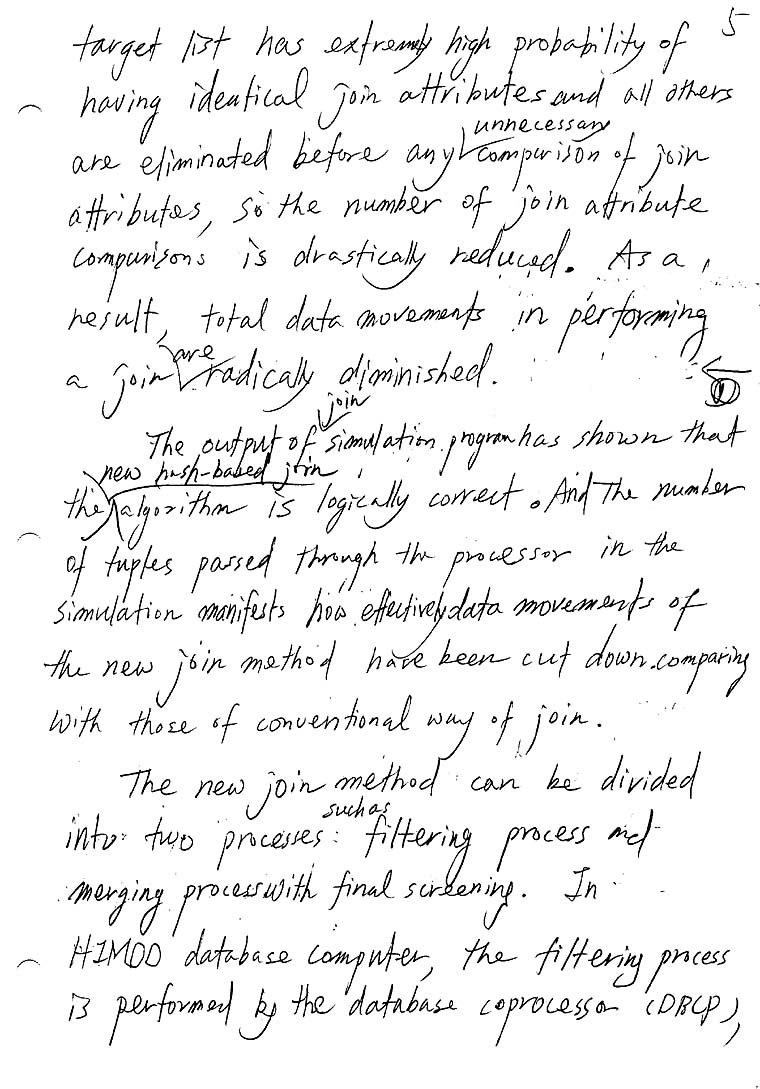 5
target list has extremely high probability of
having identical join attributes and all others
unnecessary
are eliminated before any comparison of join
attributes, so the number of join attribute
comparisons is drastically reduced. As a
result, total data movements in performing
are
a join radically diminished.
1
join
The output of simulation program has shown that
new hash-based join
the algorithm is logically correct. And the number
of tuples passed through the processor in the
simulation manifests how effectively data movements of
the new join method have been cut down comparing
with those of conventional way of join.
The new join method can be divided
such as
into two processes: filtering process and
merging process with final screening. In
HIMOD database computer, the filtering process
is performed by the database coprocessor (DBCP),